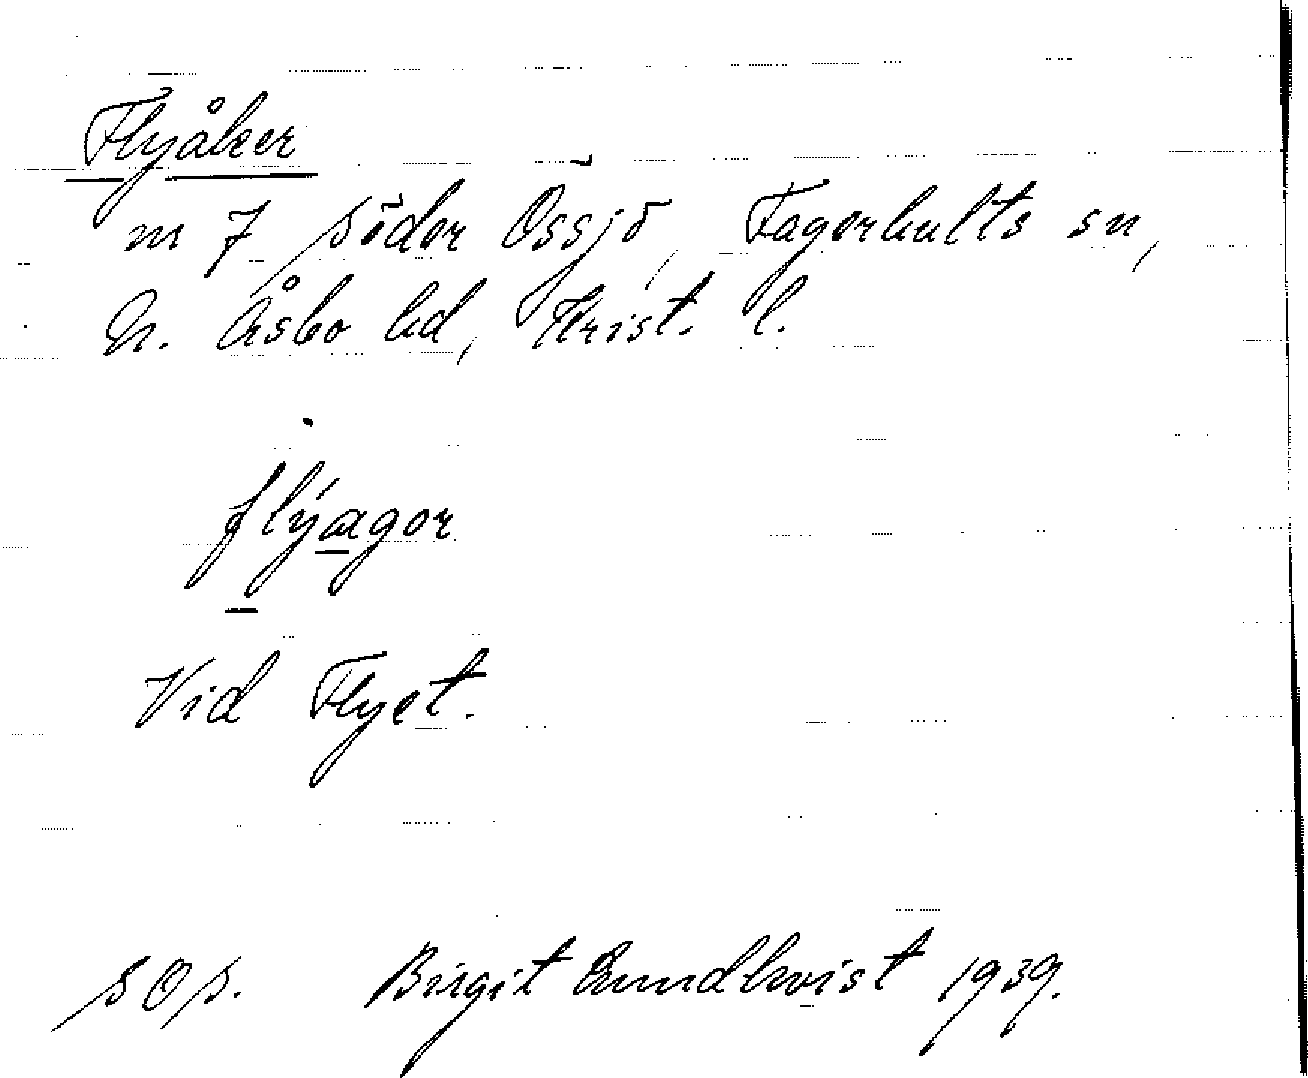 Flyåker
m 7 Söder Ossjö, Fagerhults sn,
N. Åsbo hd, Krist. l.
flýagor
Vid Flyet.
s O s. Birgit Lundkvist 1939.